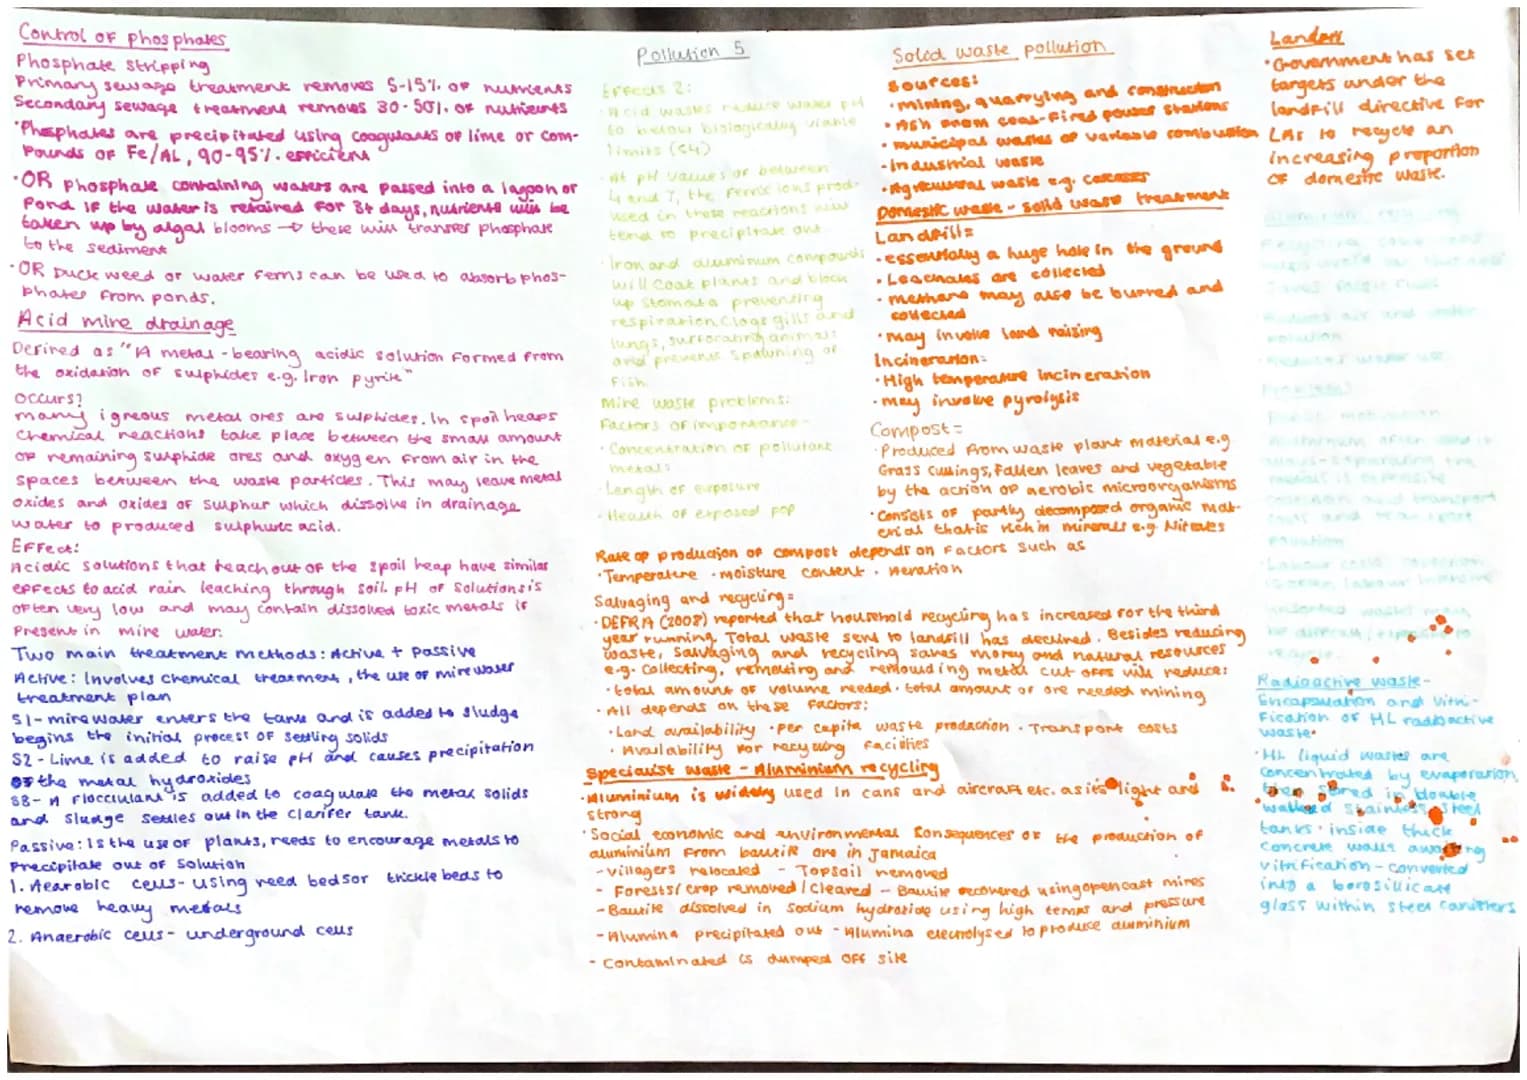 Control of phosphates
Phosphate stripping
Primary sewage treatment removes 5-15% of nutrients
Secondary sewage treatment removes 30-50% of nutrients
·Phosphates are precipitated using coagulants of lime or com-
pounds of Fe/AL, 90-95% efficient
·OR phosphate containing waters are passed into a lagoon or
pond if the water is retained for 3+ days, nutrients will be
taken up by algal blooms → these will transfer phosphate
to the sediment
·OR Duck weed or water ferns can be used to absorb phos-
phates from ponds.
Acid mine drainage
Defined as "A metal-bearing acidic solution formed from
the oxidation of sulphides e.g. Iron pyrite"
Occurs?
many igneous metal ores are sulphides. In spoil heaps
chemical reactions take place between the small amount
of remaining sulphide ores and oxygen from air in the
spaces between the waste particles. This may leave metal
oxides and oxides of sulphur which dissolve in drainage
water to produced sulphuric acid.
Effect:
Acidic solutions that leach out of the spoil heap have similar
effects to acid rain leaching through soil. pH of solutions is
often very low and may contain dissolved toxic metals if
present in mine water.
Two main treatment methods: Active + Passive
Active: Involves chemical treatment, the use of mine water
treatment plan
S1- mine water enters the tank and is added to sludge
begins the initial process of settling solids
S2- Lime is added to raise pH and causes precipitation
of the metal hydroxides
S3- A flocculant is added to coagulate the metal solids
and sludge settles out in the clarifer tank.
Passive: Is the use of plants, needs to encourage metals to
precipitate out of solution
1. Aearobic cells- using reed beds or trickle beds to
remove heavy metals
2. Anaerobic cells- underground cells
Pollution 5
Effects 2:
·Acid wastes reduce water pH
to below biologically viable
limits (<4)
·At pH values of between
4 and 7, the ferric ions prod-
uced in these reactions will
tend to precipitate out
·Iron and aluminum compounds
will coat plants and block
up stomata preventing
respiration, clogs gills and
lungs, suffocating animals
and prevents spawning of
fish.
Mine waste problems:
Factors of importance-
·Concentration of pollutant
metals
·Length of exposure
·Health of exposed pop
Solid waste pollution
Sources:
·mining, quarrying and construction
·Ash from coal-fired power stations
·municipal wastes of variable combustion
-Industrial waste
·Agricultural waste e.g. carcasses
Domestic waste - solid waste treatment
Landfill=
·essentially a huge hole in the ground
·Leachates are collected
·methane may also be burred and
collected
·may involve land raising
Incineration=
·High temperature incineration
·may involve pyrolysis
Compost=
·Produced from waste plant material e.g
Grass cuttings, fallen leaves and vegetable
by the action of aerobic microorganisms
·Consists of partly decomposed organic mat-
erial that is rich in minerals e.g Nitrates
Rate of production of compost depends on factors such as
·Temperature ·moisture content ·Aeration
Salvaging and recycling=
·DEFRA (2008) reported that household recycling has increased for the third
year running. Total waste sent to landfill has declined. Besides reducing
waste, salvaging and recycling saves money and natural resources
e.g. collecting, remelting and remoulding metal cut offs will reduce:
·total amount of volume needed ·total amount of ore needed mining
·All depends on these factors:
·Land availability ·Per capita waste production ·Transport costs
·Availability for recycling facilities
Specialist waste - Aluminium recycling
·Aluminium is widely used in cans and aircraft etc. as its light and
strong
·Social economic and environmental consequences of the production of
aluminium from bauxite ore in Jamaica
-villagers relocated - Topsoil removed
- Forests/crop removed/cleared - Bauxite recovered using opencast mines
- Bauxite dissolved in sodium hydroxide using high temps and pressure
-Alumina precipitated out - Alumina electrolysed to produce aluminium
- Contaminated is dumped off site
Landfill
·Government has set
targets under the
landfill directive for
LAs to recycle an
increasing proportion
of domestic waste.
Aluminium recycling
Saves fossil fuels
Problems:
Public motivation
Radioactive waste-
Encapsulation and vitri-
fication of HL radioactive
waste·
·HL liquid wastes are
concentrated by evaporation,
then stored in double
walled stainless steel
tanks · inside thick
concrete walls awaiting
vitrification - converted
into a borosilicate
glass within steel canisters